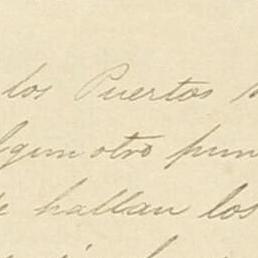 los Puertos
algun otro pun
hallan los